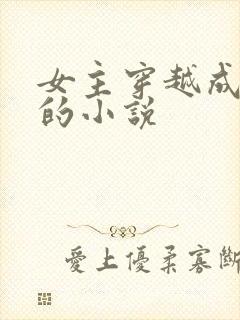 女主穿越成
的小說
愛上優柔寡斷